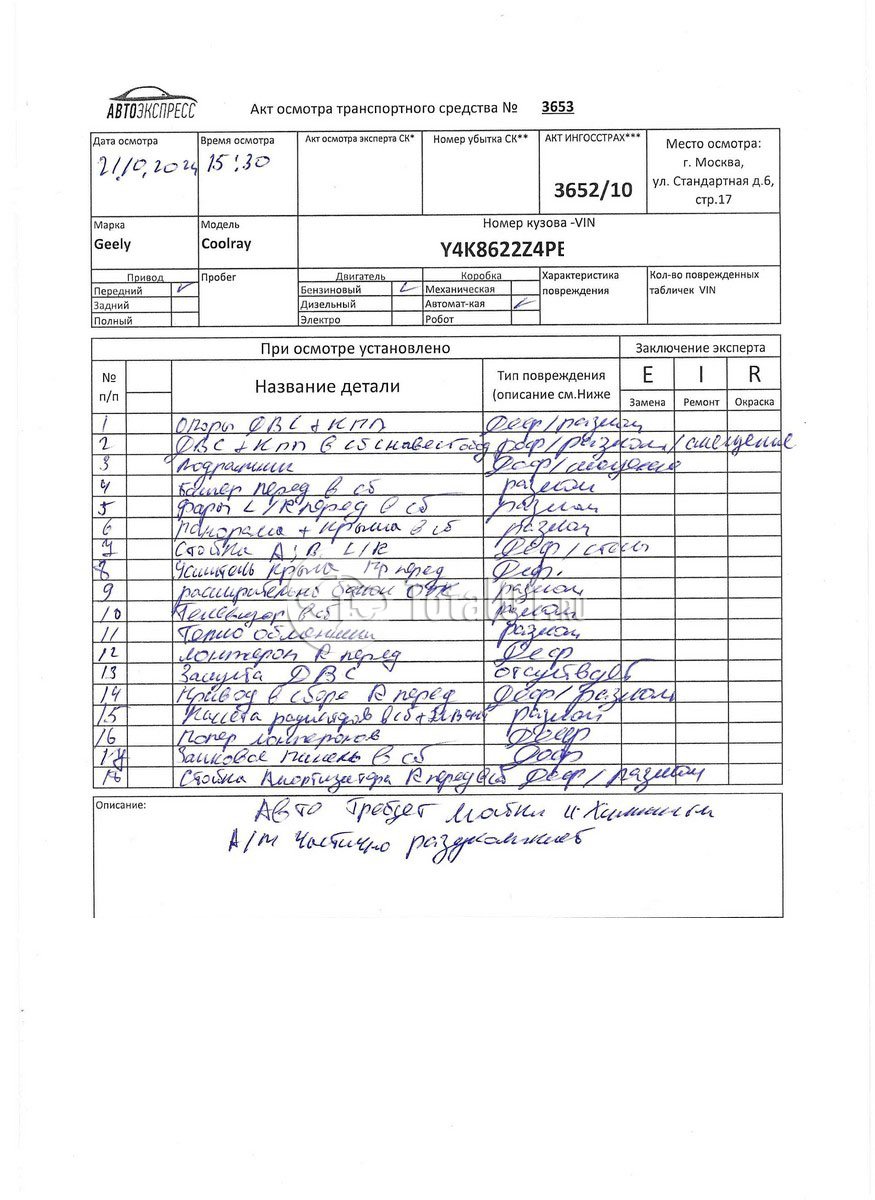 АВТОЭКСПРЕСС
Акт осмотра транспортного средства № 3653
Дата осмотра
21.10.2024
Время осмотра
15:30
Акт осмотра эксперта СК*
Номер убытка СК**
АКТ ИНГОССТРАХ***
3652/10
Место осмотра:
г. Москва,
ул. Стандартная д.6,
стр.17
Марка
Geely
Модель
Coolray
Номер кузова -VIN
Y4K8622Z4PE
Привод
Передний
Задний
Полный
Пробег
Двигатель
Бензиновый
Дизельный
Электро
Коробка
Механическая
Автомат-кая
Робот
Характеристика
повреждения
Кол-во поврежденных
табличек VIN
При осмотре установлено
Заключение эксперта
№
п/п
Название детали
Тип повреждения
(описание см.Ниже
E I R
Замена Ремонт Окраска
1 Опоры ДВС + КПП Деф/разлом
2 ДВС + КПП в сб деф/разлом/смещение
3 Подрамник Деф/смещение
4 Бампер перед в сб разлом
5 Фары L/R перед в сб разлом
6 панорама + крыша в сб разлом
7 Стойка А; В L/R Деф/
8 Усилитель крыла перед Деф.
9 расширительн бачок разлом
10 Телевизор в сб разлом
11 Теплообменник разлом
12 лонжерон R перед Деф
13 Защита ДВС отсутствует
14 Привод в сборе R перед Деф/разлом
15 Кассета радиаторов в сб + разлом
16 Попер лонжеронов Деф
17 панель в сб Деф
18 Стойка Амортизатора R перед в сб Деф/разлом
Totalkar.ru
Описание:
Авто требует мойки и химчистки
А/м частично разукомплект